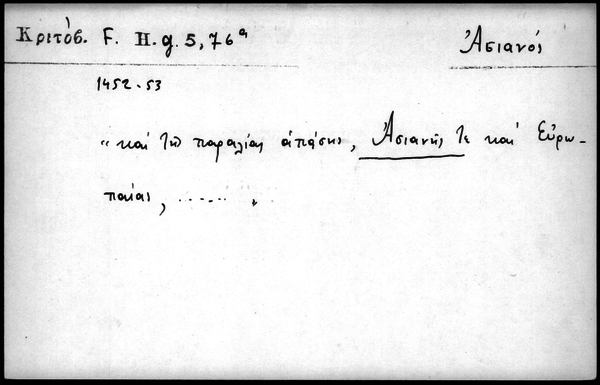 Κριτόβ. F. H. g. 5, 76ᵃ
Ἀσιανός
1452-53
"καὶ τῆς παραλίας ἁπάσης, Ἀσιανῆς τε καὶ Εὐρω-
παίας, ...... "